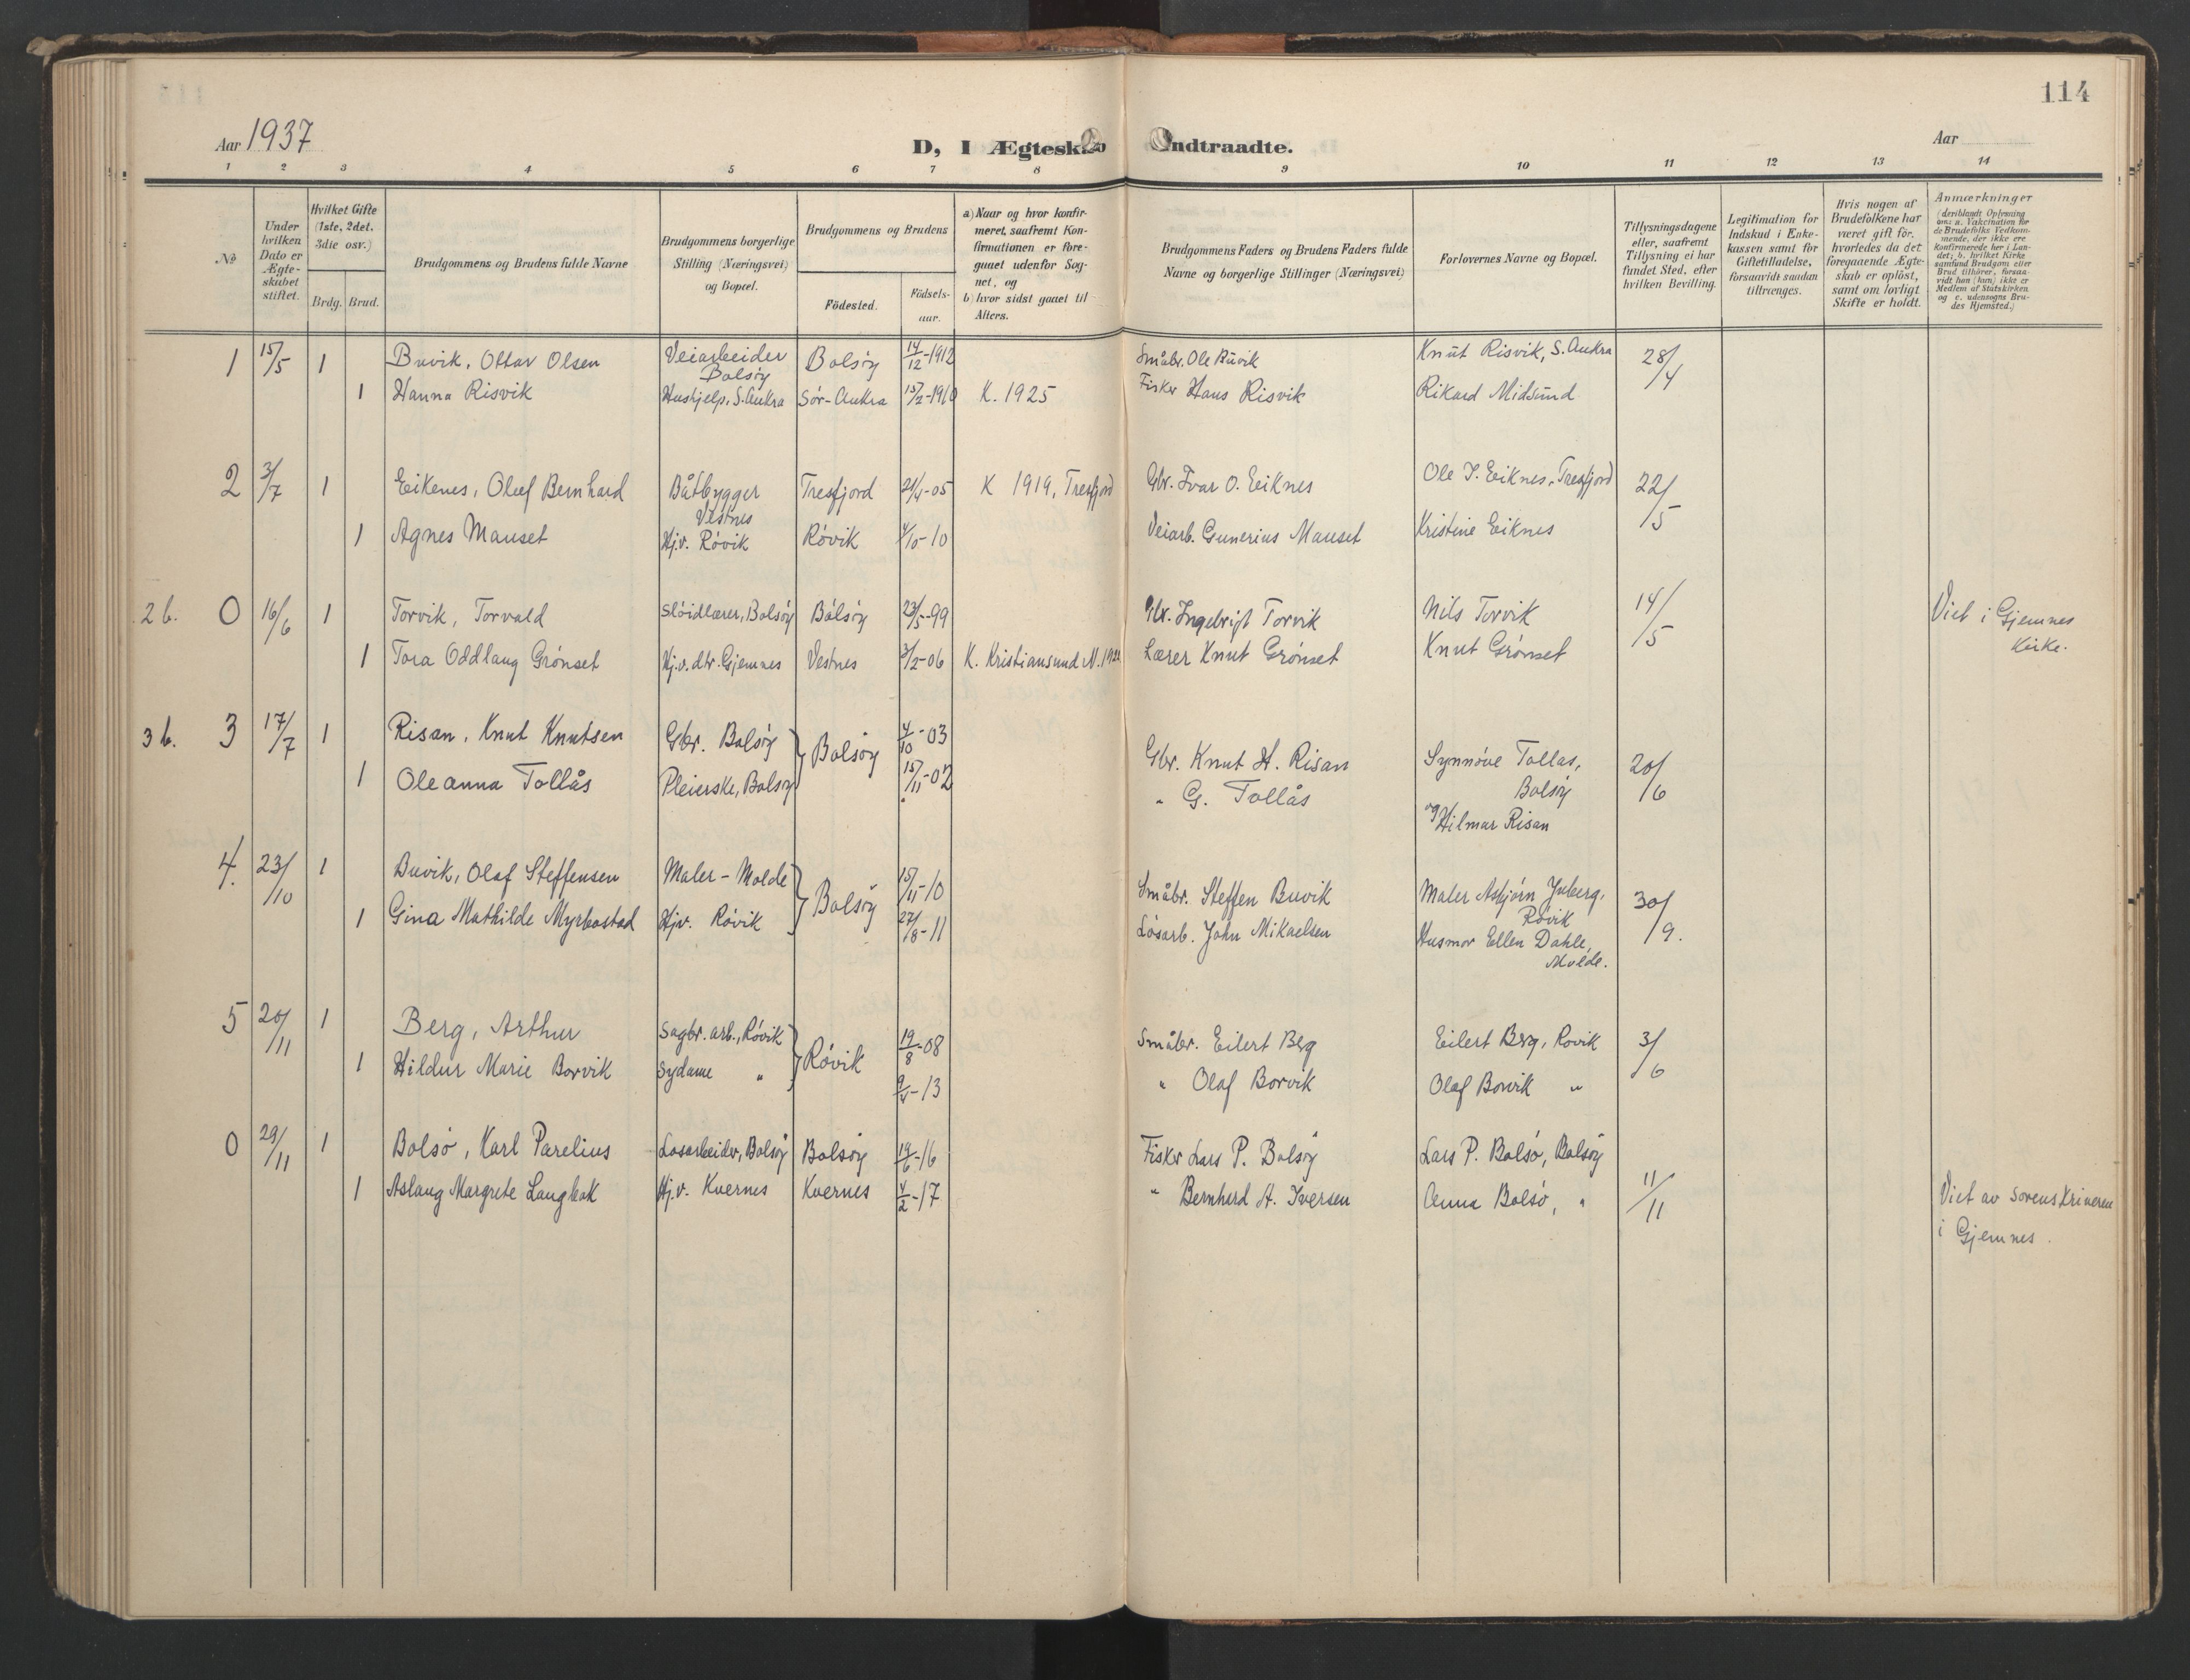 114
Aar 1937
D, I Ægteskab Indtraadte.
Aar
1 2 3 4 5 6 7 8 9 10 11 12 13 14
No
Under hvilken Dato er Ægteskabet stiftet.
Hvilket Gifte (1ste, 2det, 3die osv.)
Brdg. Brud.
Brudgommens og Brudens fulde Navne
Brudgommens borgerlige Stilling (Næringsvei) og Bopæl.
Brudgommens og Brudens
Fødested.
Fødselsaar.
a) Naar og hvor konfirmeret, saafremt Konfirmationen er foregaaet udenfor Sognet, og
b) hvor sidst gaaet til Alters.
Brudgommens Faders og Brudens Faders fulde Navne og borgerlige Stillinger (Næringsvei)
Forlovernes Navne og Bopæl.
Tillysningsdagene eller, saafremt Tillysning ei har fundet Sted, efter hvilken Bevilling.
Legitimation for Indskud i Enkekassen samt for Giftetilladelse, forsaavidt saadan tiltrænges.
Hvis nogen af Brudefolkene har været gift før, hvorledes da det foregaaende Ægteskab er opløst, samt om lovligt Skifte er holdt.
Anmærkninger (deriblandt Oplysning om: a. Vakcination for de Brudefolks Vedkommende, der ikke ere Konfirmerede her i Landet; b. hvilket Kirkesamfund Brudgom eller Brud tilhører, forsaavidt han (hun) ikke er Medlem af Statskirken og c. udensogns Brudes Hjemsted.)
1 15/5 1 Buvik, Ottar Olsen Veiarbeider Bolsöy Bolsöy 14/12-1912 Småbr. Ole Buvik Knut Risvik, S. Aukra 28/4
1 Hanna Risvik Hushjelp, S. Aukra Sör-Aukra 15/2-1910 K. 1925 Fisker Hans Risvik Rikard Midsund
2 3/7 1 Eikenes, Oluf Bernhard Båtbygger Vestnes Tresfjord 21/4-05 K 1919, Tresfjord Gbr. Ivar O. Eiknes Ole I. Eiknes, Tresfjord 22/5
1 Agnes Mauset Hj.v. Rövik Rövik 4/10-10 Veiarb. Gunerius Mauset Kristine Eiknes
2 b. 0 16/6 1 Torvik, Torvald Slöidlærer, Bolsöy Bolsöy 23/5-99 Gbr. Ingebrigt Torvik Nils Torvik 14/5 Viet i Gjemnes Kirke.
1 Tora Oddlaug Grönset Hj.v. dtr. Gjemnes Vestnes 3/2-06 K. Kristiansund N. Lærer Knut Grönset Knut Grönset
3 b. 3 17/7 1 Risan, Knut Knutsen Gbr. Bolsöy Bolsöy 4/10-03 Gbr. Knut H. Risan Synnöve Tollas, Bolsöy 20/6
1 Oleanna Tollås Pleierske, Bolsöy 15/11-02 " G. Tollås og Hilmar Risan
4. 23/10 1 Buvik, Olaf Steffensen Maler - Molde Bolsöy 15/11-10 Småbr. Steffen Buvik Maler Asbjörn Juberg, Rövik 30/9.
1 Gina Mathilde Myrbostad Hjv. Rövik 27/8-11 Lösarb. John Mikaelsen Husmor Ellen Dahle, Molde.
5 20/11 1 Berg, Arthur Sagbr. arb., Rövik Rövik 19/8-08 Småbr. Eilert Berg Eilert Berg, Rovik 3/6
1 Hildur Marie Borvik Sydame " 9/4-13 " Olaf Borvik Olaf Borvik "
0 29/11 1 Bolsö, Karl Parelius Losarbeider, Bolsöy Bolsöy 14/6-16 Fisker Lars P. Bolsöy Lars P. Bolsö, Bolsöy 11/11
1 Aslaug Margrete Langbak Hj.v. Kvernes Kvernes 4/2-17 " Bernherd A. Iversen Anna Bolsö, " Viet av sorenskriveren i Gjemnes.